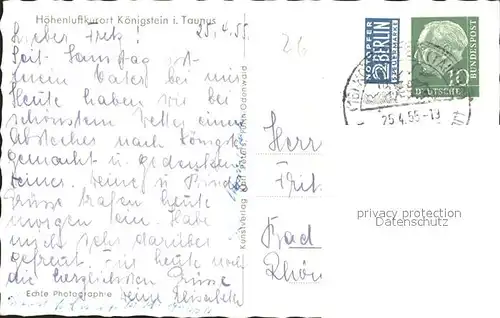 Höhenluftkurort Königstein i. Taunus
25.4.55.
Lieber Fritz!
Seit Samstag ist
mein Vater bei mir
Heute haben wir bei
schönstem Wetter einen
Abstecher nach Königst.
gemacht u. gedenken
Deiner. Deine u.
Grüsse trafen heute
morgen ein. Habe
mich sehr darüber
gefreut. Für heute noch
die herzlichsten Grüsse
Deine Elisabeth
Echte Photographie
Kunstverlag Peters Fürth Odenwald
26
NOTOPFER
2 BERLIN
STEUERMARKE
DEUTSCHE
BUNDESPOST
10
25.4.55-19
Herr
Frit
Bad
Rhön
privacy protection
Datenschutz